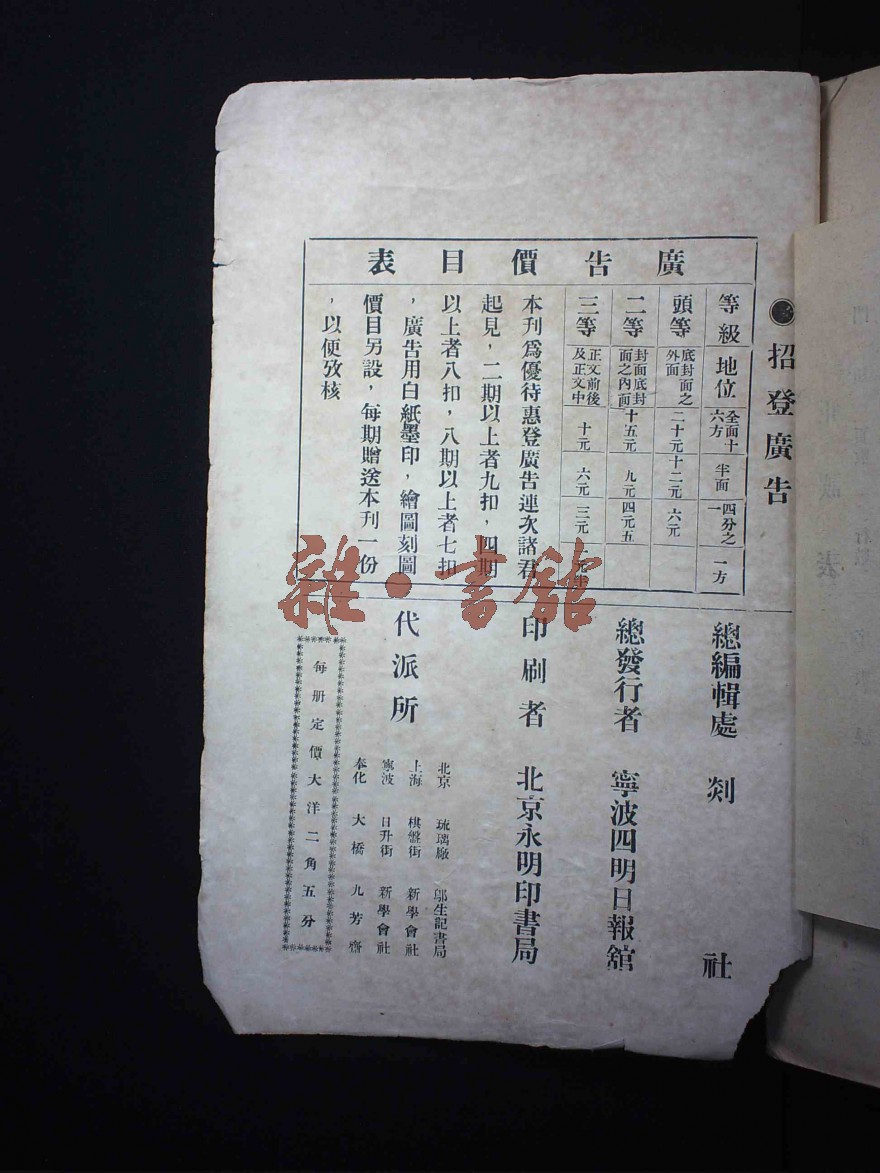 ●招登廣告
廣告價目表
等級 地位 全面十六方 半面 四分之一 一方
頭等 底封面之外面 二十元 十二元 六元
二等 封面底封面之內面 十五元 九元 四元五
三等 正文前後及正文中 十元 六元 三元
本刊爲優待惠登廣告連次諸君
起見，二期以上者九扣，四期
以上者八扣，八期以上者七扣
，廣告用白紙墨印，繪圖刻圖
價目另設，每期贈送本刊一份
，以便攷核
總編輯處 剡社
總發行者 寧波四明日報舘
印刷者 北京永明印書局
代派所
北京 琉璃廠 邬生記書局
上海 棋盤街 新學會社
寧波 日升街 新學會社
奉化 大橋 九芳齋
每册定價大洋二角五分
雜·書館